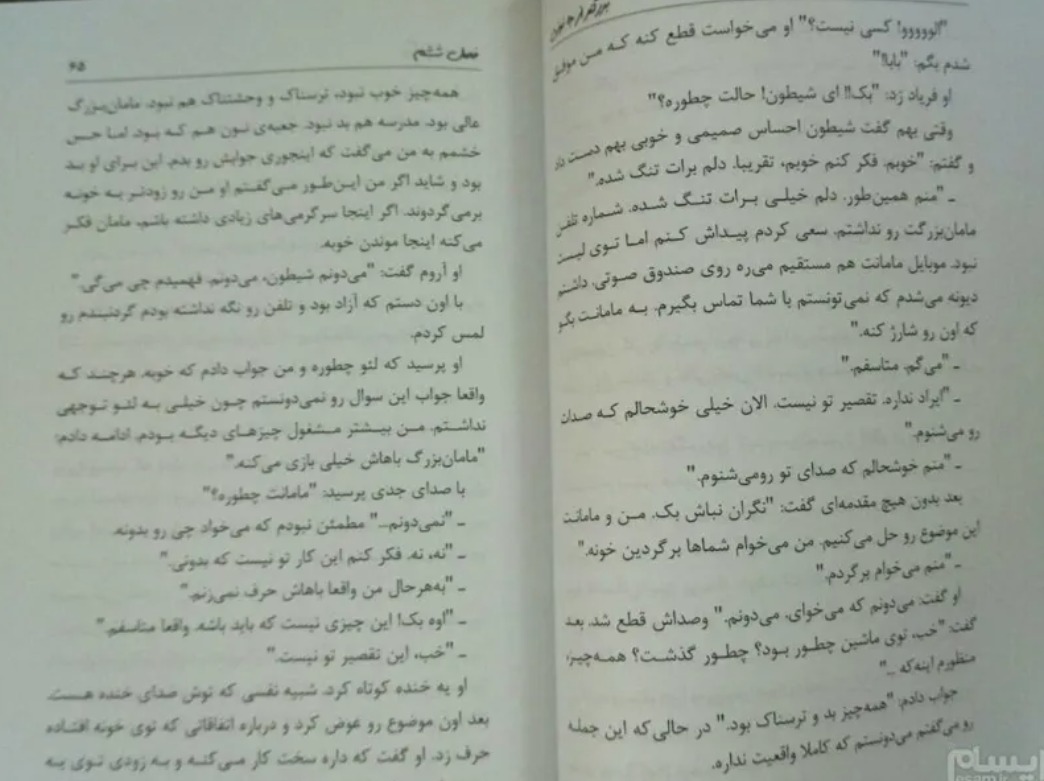 "الووووو! کسی نیست؟" او می‌خواست قطع کنه که من موفق
شدم بگم: "بابا!"
او فریاد زد: "بک!! ای شیطون! حالت چطوره؟"
وقتی بهم گفت شیطون احساس صمیمی و خوبی بهم دست داد
و گفتم: "خوبم. فکر کنم خوبم، تقریبا. دلم برات تنگ شده."
ـ "منم همین‌طور. دلم خیلی برات تنگ شده. شماره تلفن
مامان‌بزرگت رو نداشتم. سعی کردم پیداش کنم اما توی لیست
نبود. موبایل مامانت هم مستقیم می‌ره روی صندوق صوتی. داشتم
دیونه می‌شدم که نمی‌تونستم با شما تماس بگیرم. به مامانت بگو
که اون رو شارژ کنه."
ـ "می‌گم. متاسفم."
ـ "ایراد نداره. تقصیر تو نیست. الان خیلی خوشحالم که صدات
رو می‌شنوم."
ـ "منم خوشحالم که صدای تو رومی‌شنوم."
بعد بدون هیچ مقدمه‌ای گفت: "نگران نباش بک. من و مامانت
این موضوع رو حل می‌کنیم. من می‌خوام شماها برگردین خونه."
ـ "منم می‌خوام برگردم."
او گفت: می‌دونم که می‌خوای. می‌دونم." وصداش قطع شد. بعد
گفت: "خب، توی ماشین چطور بود؟ چطور گذشت؟ همه‌چیز،
منظورم اینه‌که ..."
جواب دادم: "همه‌چیز بد و ترسناک بود." در حالی‌که این جمله
رو می‌گفتم می‌دونستم که کاملا واقعیت نداره.
فصل ششم
۶۵
همه‌چیز خوب نبود، ترسناک و وحشتناک هم نبود. مامان‌بزرگ
عالی بود. مدرسه هم بد نبود. جعبه‌ی نون هم که بود. اما حس
خشمم به من می‌گفت که اینجوری جوابش رو بدم. این برای او بد
بود و شاید اگر من این‌طور می‌گفتم او من رو زودتر به خونه
برمی‌گردوند. اگر اینجا سرگرمی‌های زیادی داشته باشم، مامان فکر
می‌کنه اینجا موندن خوبه.
او آروم گفت: "می‌دونم شیطون، می‌دونم. فهمیدم چی می‌گی."
با اون دستم که آزاد بود و تلفن رو نگه نداشته بودم گردنبندم رو
لمس کردم.
او پرسید که لئو چطوره و من جواب دادم که خوبه. هرچند که
واقعا جواب این سوال رو نمی‌دونستم چون خیلی به لئو توجهی
نداشتم. من بیشتر مشغول چیزهای دیگه بودم. ادامه دادم:
"مامان‌بزرگ باهاش خیلی بازی می‌کنه."
با صدای جدی پرسید: "مامانت چطوره؟"
ـ "نمی‌دونم..." مطمئن نبودم که می‌خواد چی رو بدونه.
ـ "نه، نه. فکر کنم این کار تو نیست که بدونی."
ـ "به‌هرحال من واقعا باهاش حرف نمی‌زنم."
ـ "اوه بک! این چیزی نیست که باید باشه. واقعا متاسفم."
ـ "خب، این تقصیر تو نیست."
او یه خنده کوتاه کرد. شبیه نفسی که توش صدای خنده هست.
بعد اون موضوع رو عوض کرد و درباره اتفاقاتی که توی خونه افتاده
حرف زد. او گفت که داره سخت کار می‌کنه و به زودی توی یه
ایسام
esam.ir